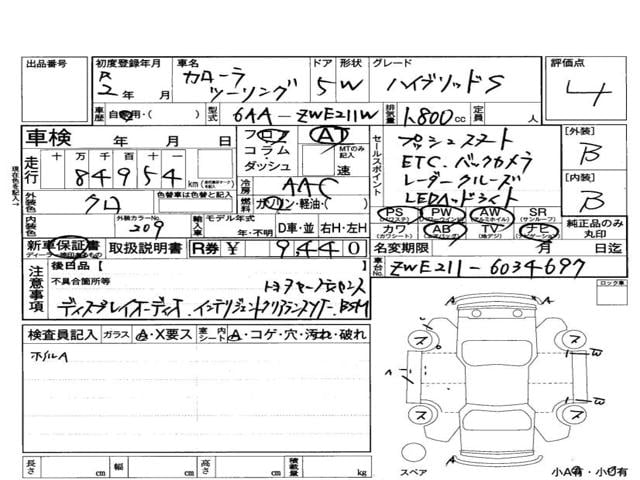 出品番号 初度登録年月 車名 ドア 形状 グレード 評価点
R 2年 月 カローラ ツーリング 5 W ハイブリッドS 4
車歴 自家用・( ) 型式 6AA-ZWE211W 排気量 1,800cc 定員 人
車検 年 月 日 フロア AT セールスポイント プッシュスタート [外装] B
コラム・ MTのみ記入 ETC. バックカメラ
走行 十万千百十一 84954 km ダッシュ 速 レーダークルーズ [内装] B
現在色を記入→
外装色 クロ 色替車は色替と記入 冷房 AAC 燃料 ガソリン・軽油・( ) LEDヘッドライト
PS (パワステ) PW (パワーウインドウ) AW (アルミホイル) SR (サンルーフ) 純正品のみ丸印
内装色 外装カラーNo. 209 輸入車 モデル年式 年・不明 D車・並 右H・左H カワ (カワシート) AB (エアバッグ) TV (地デジ) ナビ (ナビゲーション)
新車保証書 取扱説明書 R券 ¥ 9,440 名変期限 月 日迄
車台No. ZWE211-6034697
注意事項 後日品【
不具合箇所等
ディスプレイオーディオ. インテリジェントクリアランスソナー. BSM
ロック車
検査員記入 ガラス A・X要ス 室内シート A・コゲ・穴・汚れ・破れ
ホイルA
A
A
A
ス ス
ス ス
W
W
1
1
スペア
長さ cm 幅 cm 高さ cm 積載量 kg 小A有・小U有